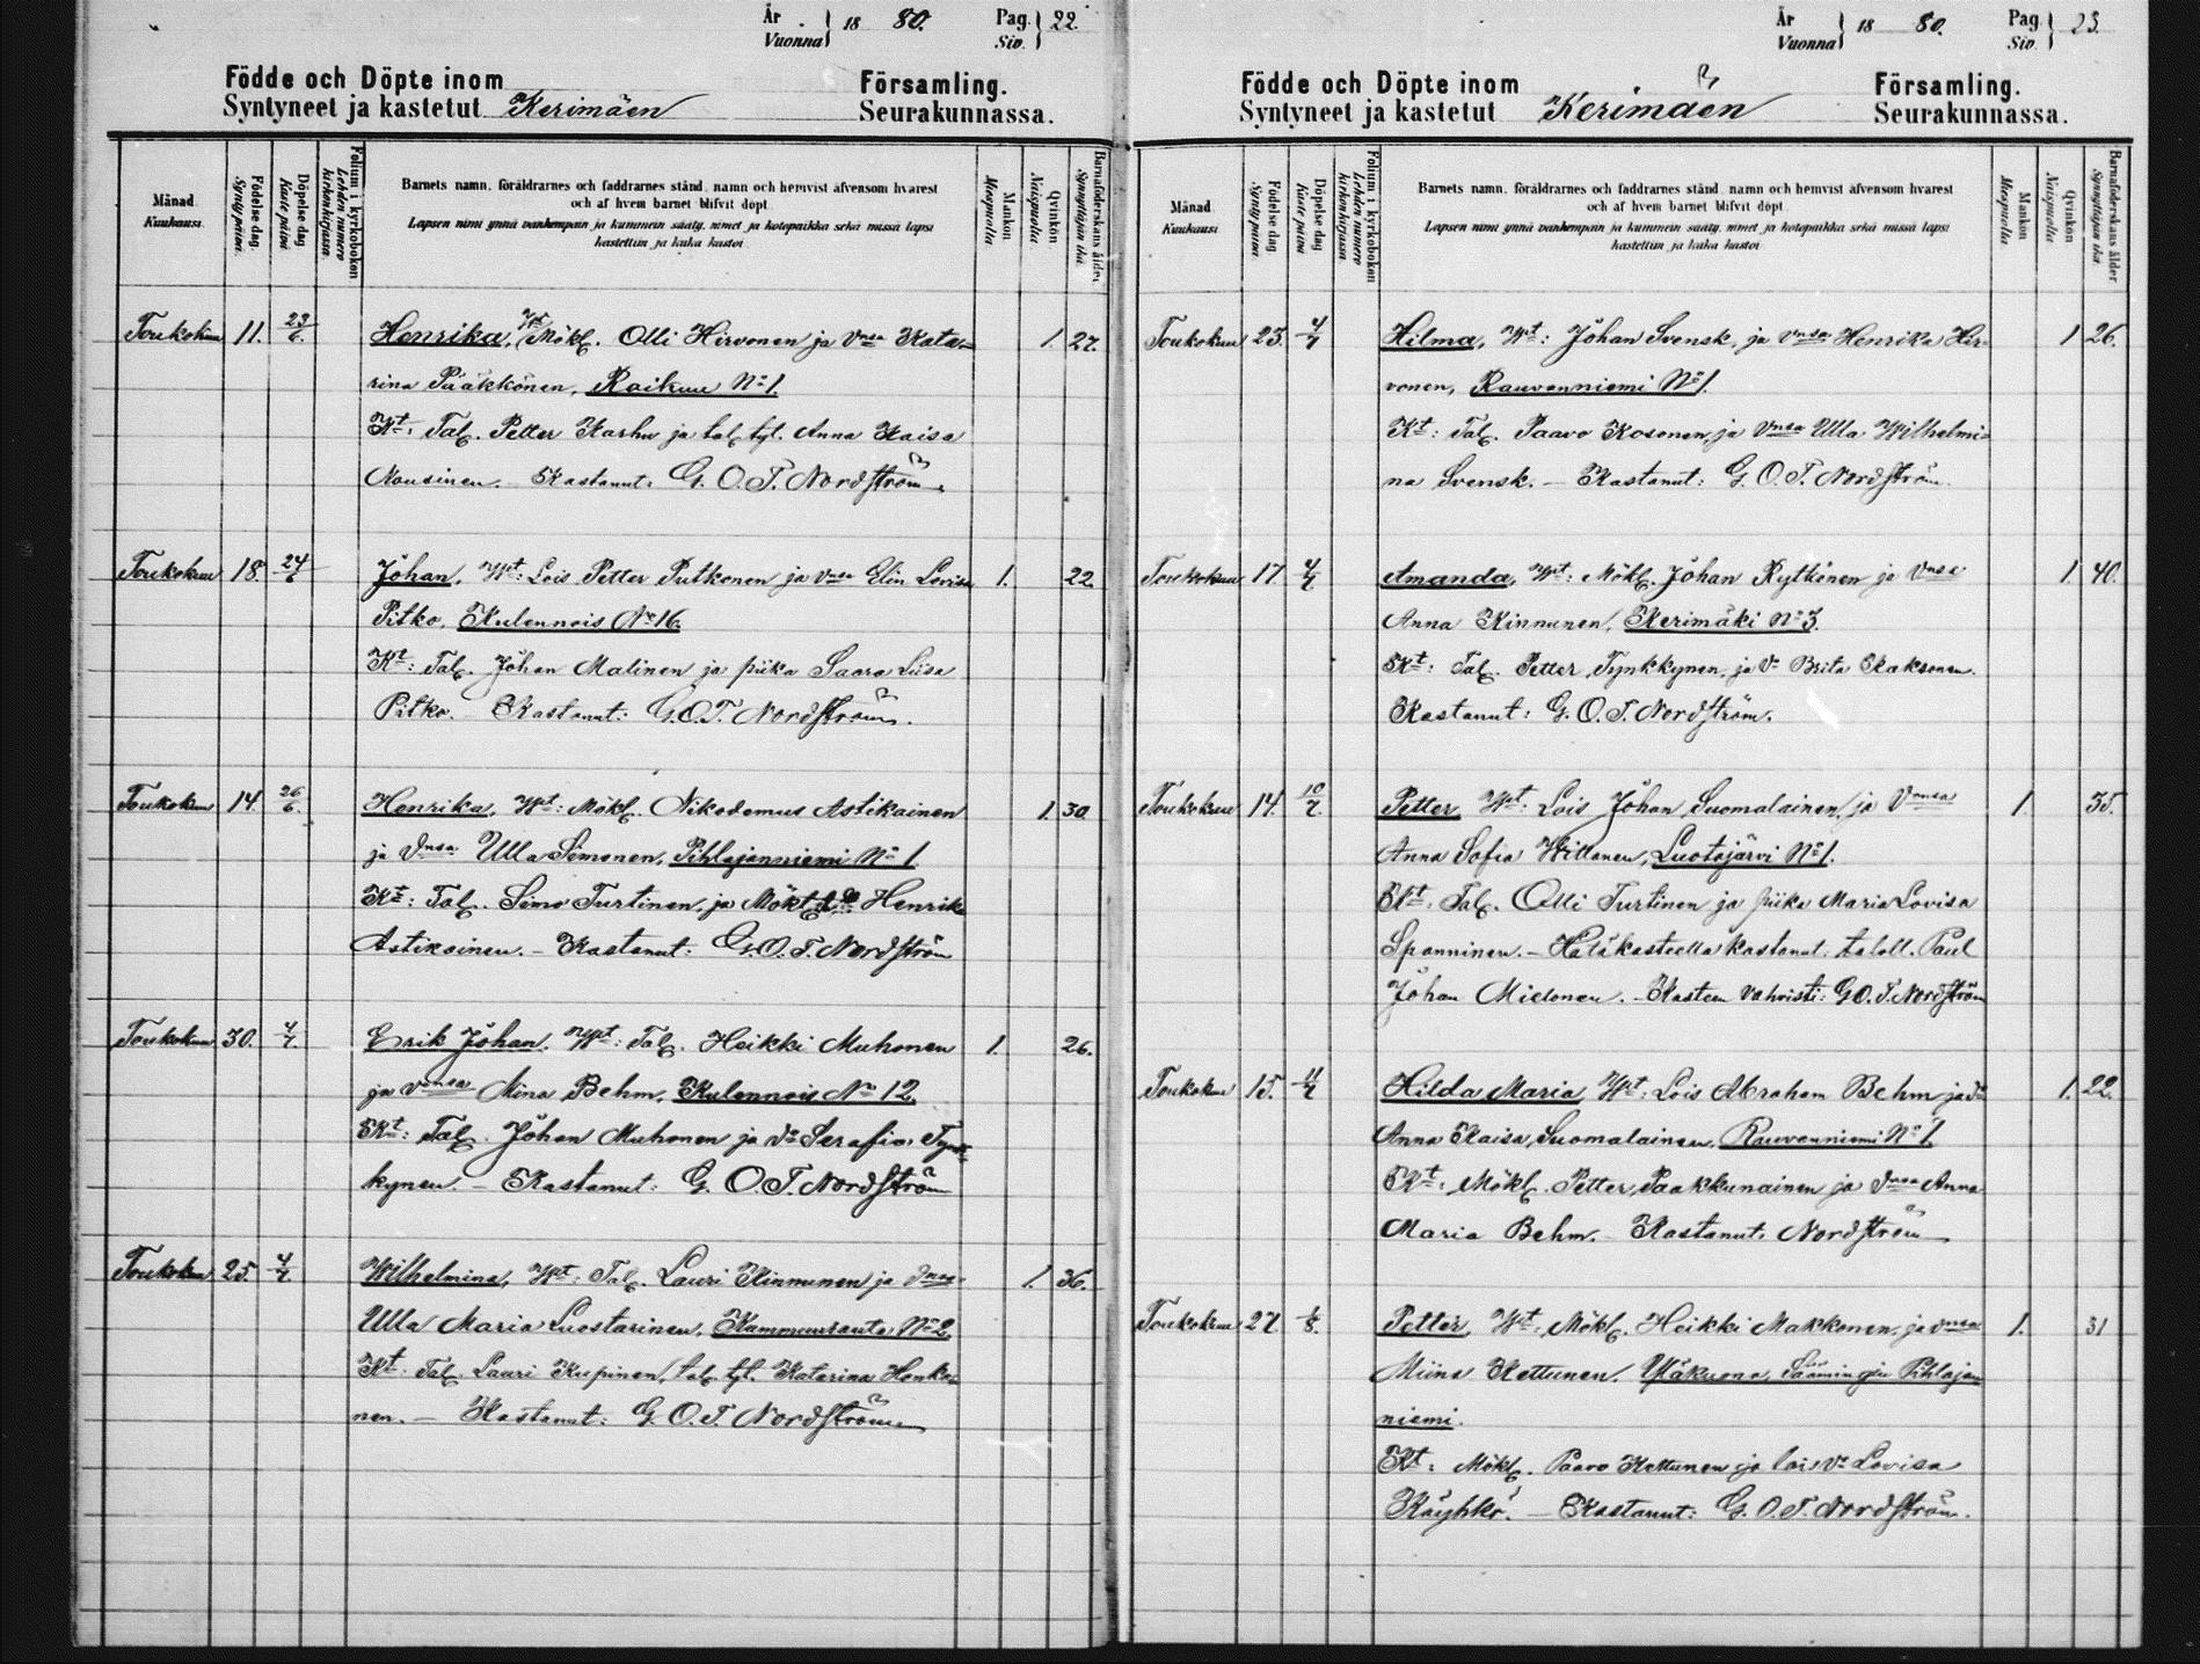 År Vuonna } 18 80. Pag. Siv. } 22
Födde och Döpte inom Församling.
Syntyneet ja kastetut Kerimäen Seurakunnassa.
Månad Kuukausi
Födelse dag. Synty päivä.
Döpelse dag Kaste päivä
Folium i kyrkoboken Lehden numero kirkonkirjassa
Barnets namn, föräldrarnes och faddrarnes stånd, namn och hemvist äfvensom hvarest
och af hvem barnet blifvit döpt.
Lapsen nimi ynnä vanhempain ja kummein sääty, nimet ja kotopaikka sekä missä lapsi
kastettiin ja kuka kastoi
Mankön Miespuolta
Qvinkön Naispuolta
Barnaföderskans ålder Synnyttäjän ikä
Toukokuu 11. 23/6. Henrika, Wt Mökl. Olli Hirvonen ja Vnsa Kata- 1. 27.
rina Pääkkönen, Raikuu No 1.
Kt: Tal. Petter Karhu ja tal. tyt. Anna Kaisa
Nousinen. Kastanut: G. O. T. Nordström.
Toukokuu 18. 24/6 Johan, Wt: Lois Petter Putkonen ja Vnsa Elin Lovisa 1. 22
Pitko, Kulennois No 16.
Kt: Tal. Johan Malinen ja piika Saara Liisa
Pitko. Kastanut: G. O. T. Nordström.
Toukokuu 14. 26/6. Henrika, Wt: Mökl. Nikodemus Astikainen 1. 30
ja Vnsa Ulla Simonen, Pihlajanniemi No 1
Kt: Tal. Simo Turtinen, ja Mökt. Henrika
Astikainen. - Kastanut: G. O. T. Nordström
Toukokuu 30. 4/7. Erik Johan. Wt: Tal. Heikki Muhonen 1. 26.
ja vnsa Mina Behm, Kulennois No 12.
Kt: Tal. Johan Muhonen ja Vo Serafia Tynk-
kynen. - Kastanut: G. O. T. Nordström
Toukokuu 25. 4/7. Wilhelmina, Wt: Tal. Lauri Kinnunen ja Vnsa 1. 36.
Ulla Maria Luostarinen, Kammuuranta No 2.
Kt. Tal. Lauri Kupinen, tal. tyt. Katarina Henko-
nen. - Kastanut: G. O. T. Nordström
År Vuonna } 18 80. Pag. Siv. } 23.
Födde och Döpte inom Församling.
Syntyneet ja kastetut Kerimäen Seurakunnassa.
Månad Kuukausi
Födelse dag Synty päivä
Döpelse dag Kaste päivä
Folium i kyrkoboken Lehden numero kirkonkirjassa
Barnets namn, föräldrarnes och faddrarnes stånd, namn och hemvist äfvensom hvarest
och af hvem barnet blifvit döpt.
Lapsen nimi ynnä vanhempain ja kummein sääty, nimet ja kotopaikka sekä missä lapsi
kastettiin ja kuka kastoi
Mankön Miespuolta
Qvinkön Naispuolta
Barnaföderskans ålder Synnyttäjän ikä
Toukokuu 23. 4/7 Hilma, Wt: Johan Svensk, ja Vnsa Henrika Hir- 1 26.
vonen, Rauvanniemi No 1.
Kt: Tal. Paavo Kosonen, ja Vnsa Ulla Wilhelmi-
na Svensk. - Kastanut: G. O. T. Nordström.
Toukokuu 17. 4/7. Amanda, Wt: Mökl. Johan Rytkönen ja Vnsa 1. 40.
Anna Kinnunen, Kerimäki No 3.
Kt: Tal. Petter Tynkkynen, ja Vo Brita Kaksonen.
Kastanut: G. O. T. Nordström.
Toukokuu 14. 10/7. Petter Wt: Lois Johan Suomalainen, ja Vnsa 1. 35.
Anna Sofia Wiltonen, Luotojärvi No 1.
Kt. Tal. Olli Turtinen ja piika Maria Lovisa
Spanninen. - Hätäkasteella kastanut: taloll. Paul
Johan Mielonen. - Kasteen vahvisti: G. O. T. Nordström
Toukokuu 15. 11/7 Hilda Maria, Wt: Lois Abraham Behm ja Vo 1. 22.
Anna Kaisa Suomalainen, Rauvanniemi No 1.
Kt: Mökl. Petter Paakkunainen ja Vnsa Anna
Maria Behm. - Kastanut. Nordström
Toukokuu 27. 1/8. Petter, Wt: Mökl. Heikki Makkonen, ja vnsa 1. 31
Miina Kettunen. Yläkuona, Säämingin Pihlajan
niemi.
Kt: Mökl. Paavo Kettunen ja lois Vo Lovisa
Käyhkö. - Kastanut: G. O. T. Nordström.